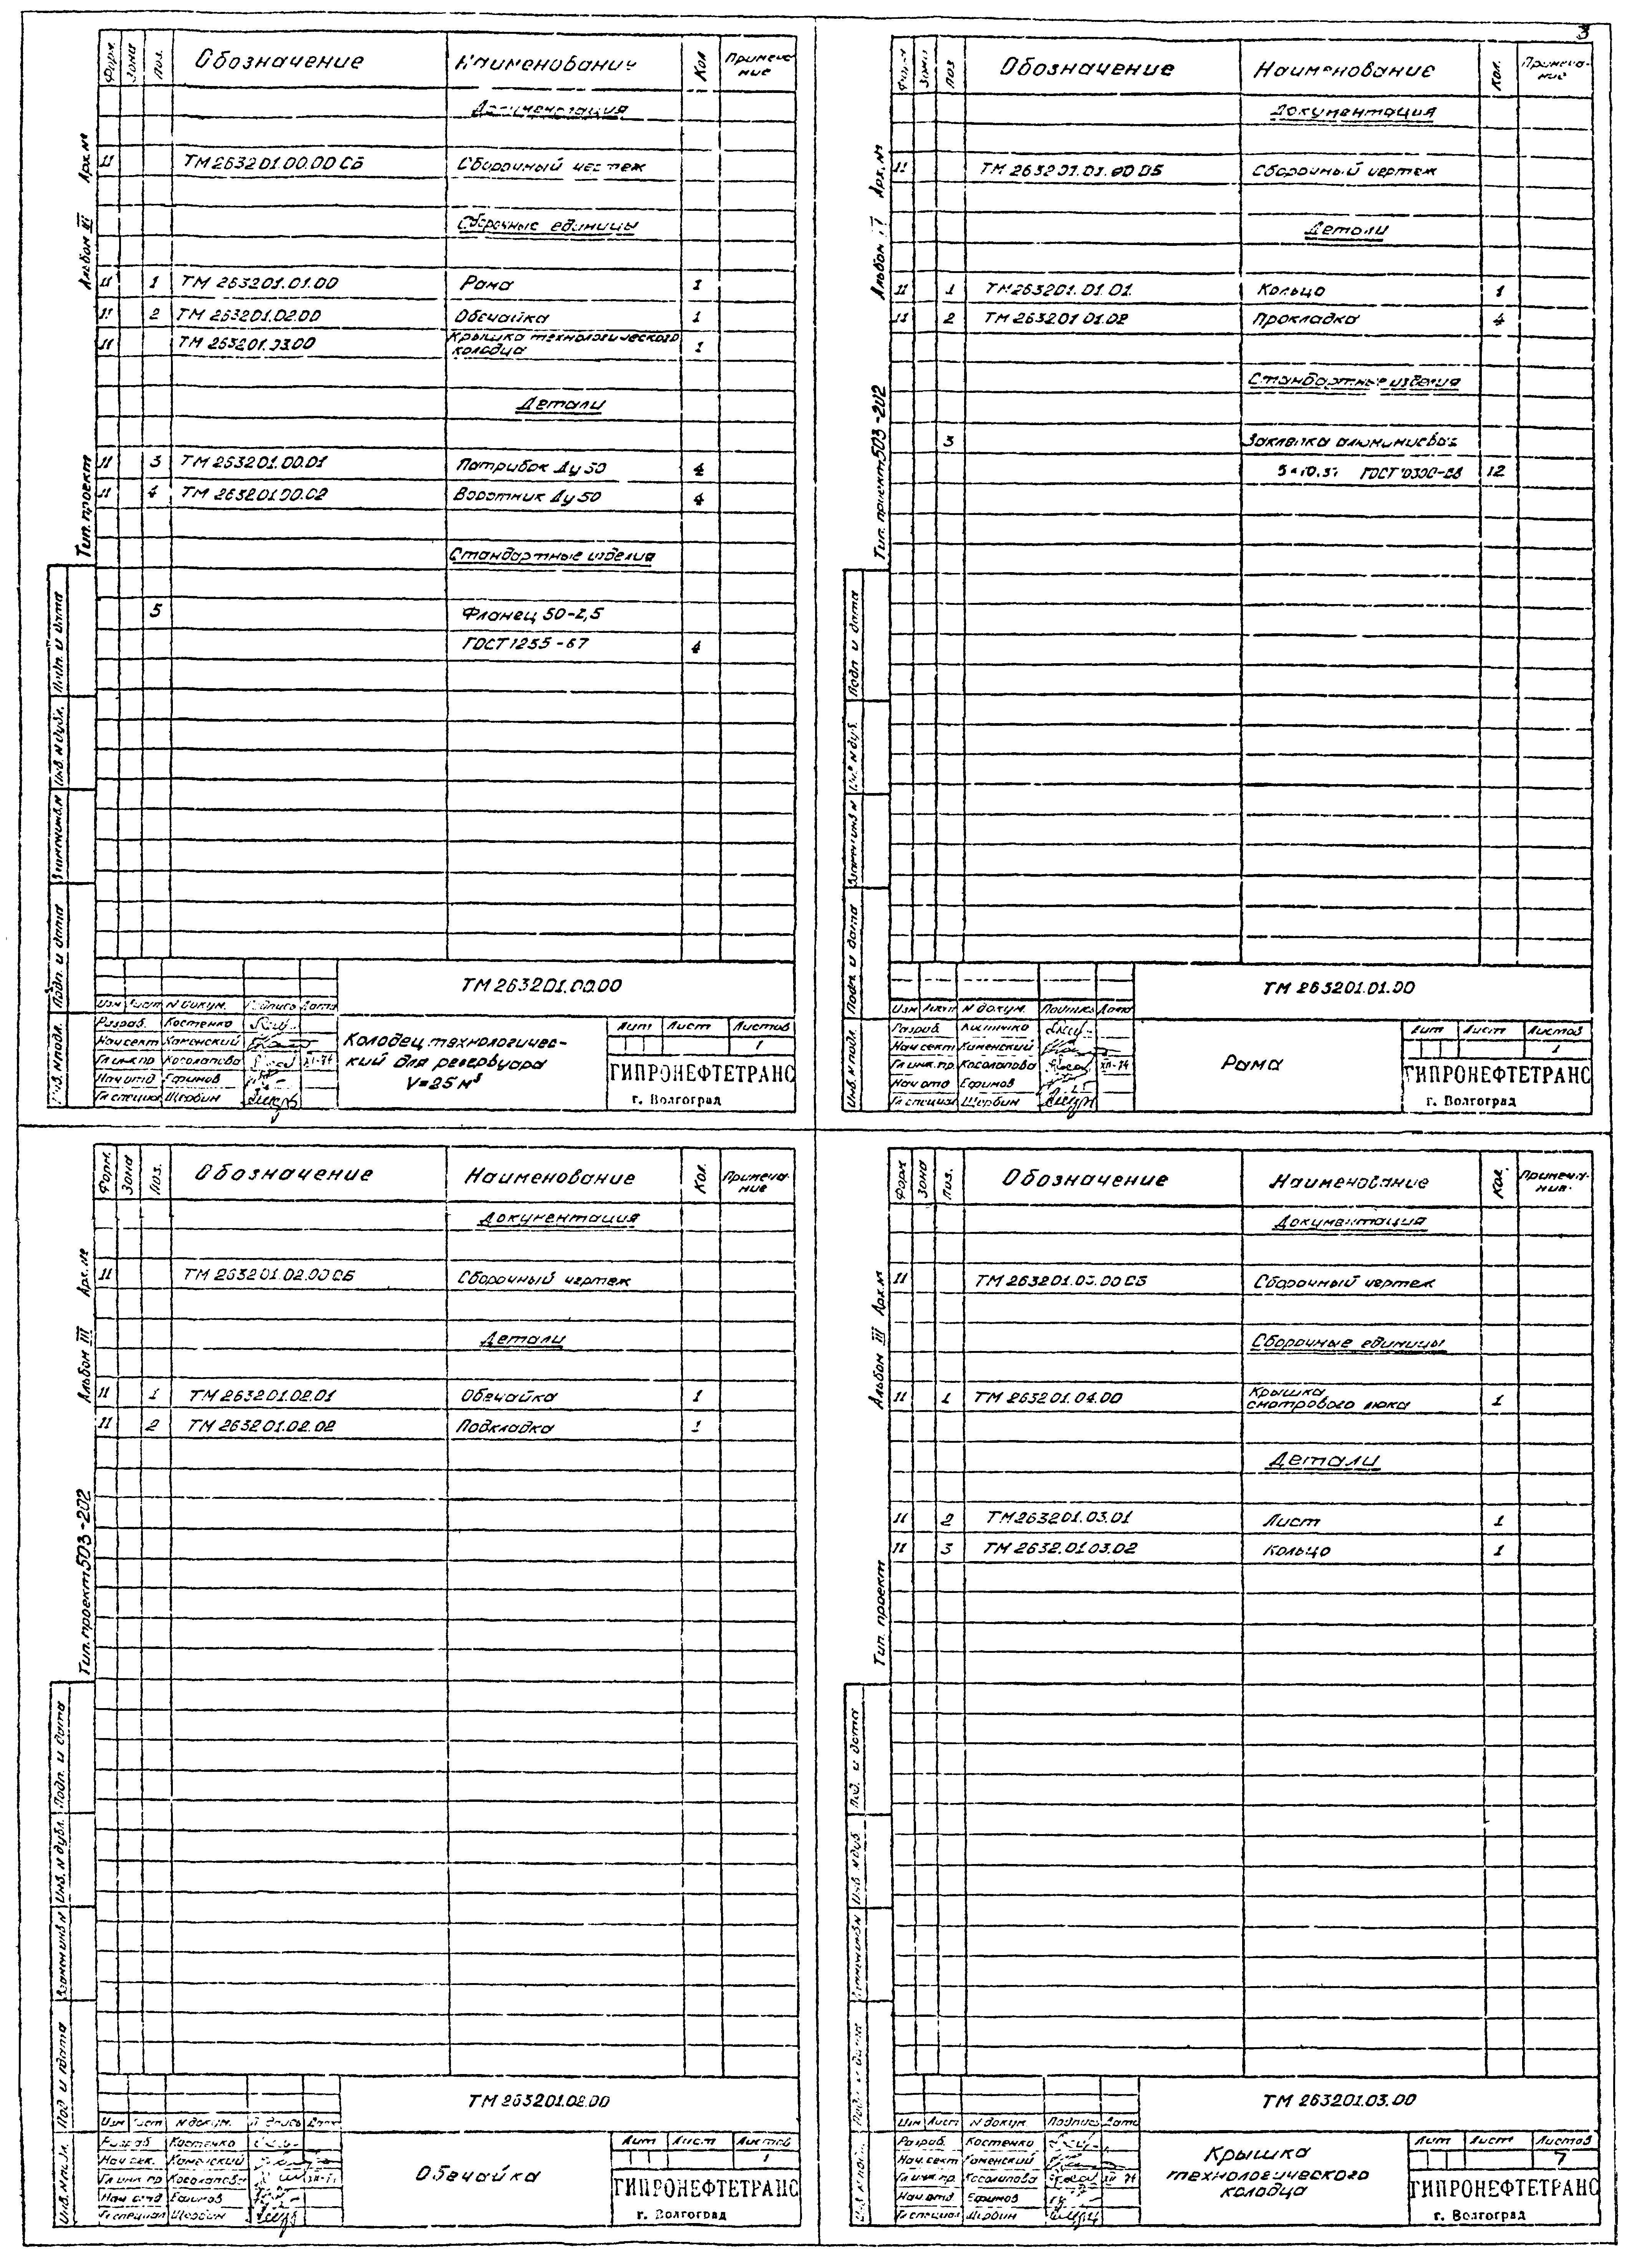 3
Форм. Зона Поз. Обозначение Наименование Кол Примеча-
ние
Документация
11 ТМ 263201.00.00 СБ Сборочный чертеж
Сборочные единицы
11 1 ТМ 263201.01.00 Рама 1
11 2 ТМ 263201.02.00 Обечайка 1
11 ТМ 263201.03.00 Крышка технологического
колодца 1
Детали
11 3 ТМ 263201.00.01 Патрубок Ду 50 4
11 4 ТМ 263201.00.02 Воротник Ду 50 4
Стандартные изделия
5 Фланец 50-2,5
ГОСТ 1255-67 4
Тип. проект Альбом III Арх. №
Инв. № подл. Подп. и дата Взамен инв. № Инв. № дубл. Подп. и дата
ТМ 263201.00.00
Изм Лист № докум. Подпись Дата
Разраб. Костенко
Нач сект Каменский
Гл инж пр Косолапова XII-74
Нач отд Ефимов
Гл специал Щербин
Колодец технологичес-
кий для резервуара
V=25 м³
Лит Лист Листов
1
ГИПРОНЕФТЕТРАНС
г. Волгоград
Форм Зона Поз Обозначение Наименование Кол. Примеча-
ние
Документация
11 ТМ 263201.01.00 СБ Сборочный чертеж
Детали
11 1 ТМ 263201.01.01 Кольцо 1
11 2 ТМ 263201.01.02 Прокладка 4
Стандартные изделия
3 Заклепка алюминиевая
ГОСТ 10300-68 12
Тип. проект 503-202 Альбом Арх. №
Инв. № подл. Подп. и дата Взамен инв № Инв. № дуб. Подп и дата
ТМ 263201.01.00
Изм Лист № докум. Подпись Дата
Разраб. Костенко
Нач сект Каменский
Гл инж. пр. Косолапова XII-74
Нач отд Ефимов
Гл специал Щербин
Рама
Лит Лист Листов
1
ГИПРОНЕФТЕТРАНС
г. Волгоград
Форм. Зона Поз. Обозначение Наименование Кол. Примеча-
ние
Документация
11 ТМ 263201.02.00 СБ Сборочный чертеж
Детали
11 1 ТМ 263201.02.01 Обечайка 1
11 2 ТМ 263201.02.02 Подкладка 1
Тип. проект 503-202 Альбом III Арх. №
Инв. № подл. Под. и дата Взамен инв № Инв. № дубл. Подп. и дата
ТМ 263201.02.00
Изм Лист № докум. Подпись Дата
Разраб Костенко
Нач. сек. Каменский
Гл инж пр Косолапова
Нач отд Ефимов
Гл специал Щербин
Обечайка
Лит Лист Листов
1
ГИПРОНЕФТЕТРАНС
г. Волгоград
Форм Зона Поз. Обозначение Наименование Кол. Примеча-
ние.
Документация
11 ТМ 263201.03.00 СБ Сборочный чертеж
Сборочные единицы
11 1 ТМ 263201.04.00 Крышка
смотрового люка 1
Детали
11 2 ТМ 263201.03.01 Лист 1
11 3 ТМ 2632.01.03.02 Кольцо 1
Тип. проект Альбом III Арх. №
Инв № дуб Под. и дата
ТМ 263201.03.00
Изм Лист № докум Подпись Дата
Разраб. Костенко
Нач. сект Каменский
Гл инж. пр. Косолапова XII 74
Нач отд Ефимов
Гл специал Щербин
Крышка
технологического
колодца
Лит Лист Листов
ГИПРОНЕФТЕТРАНС
г. Волгоград